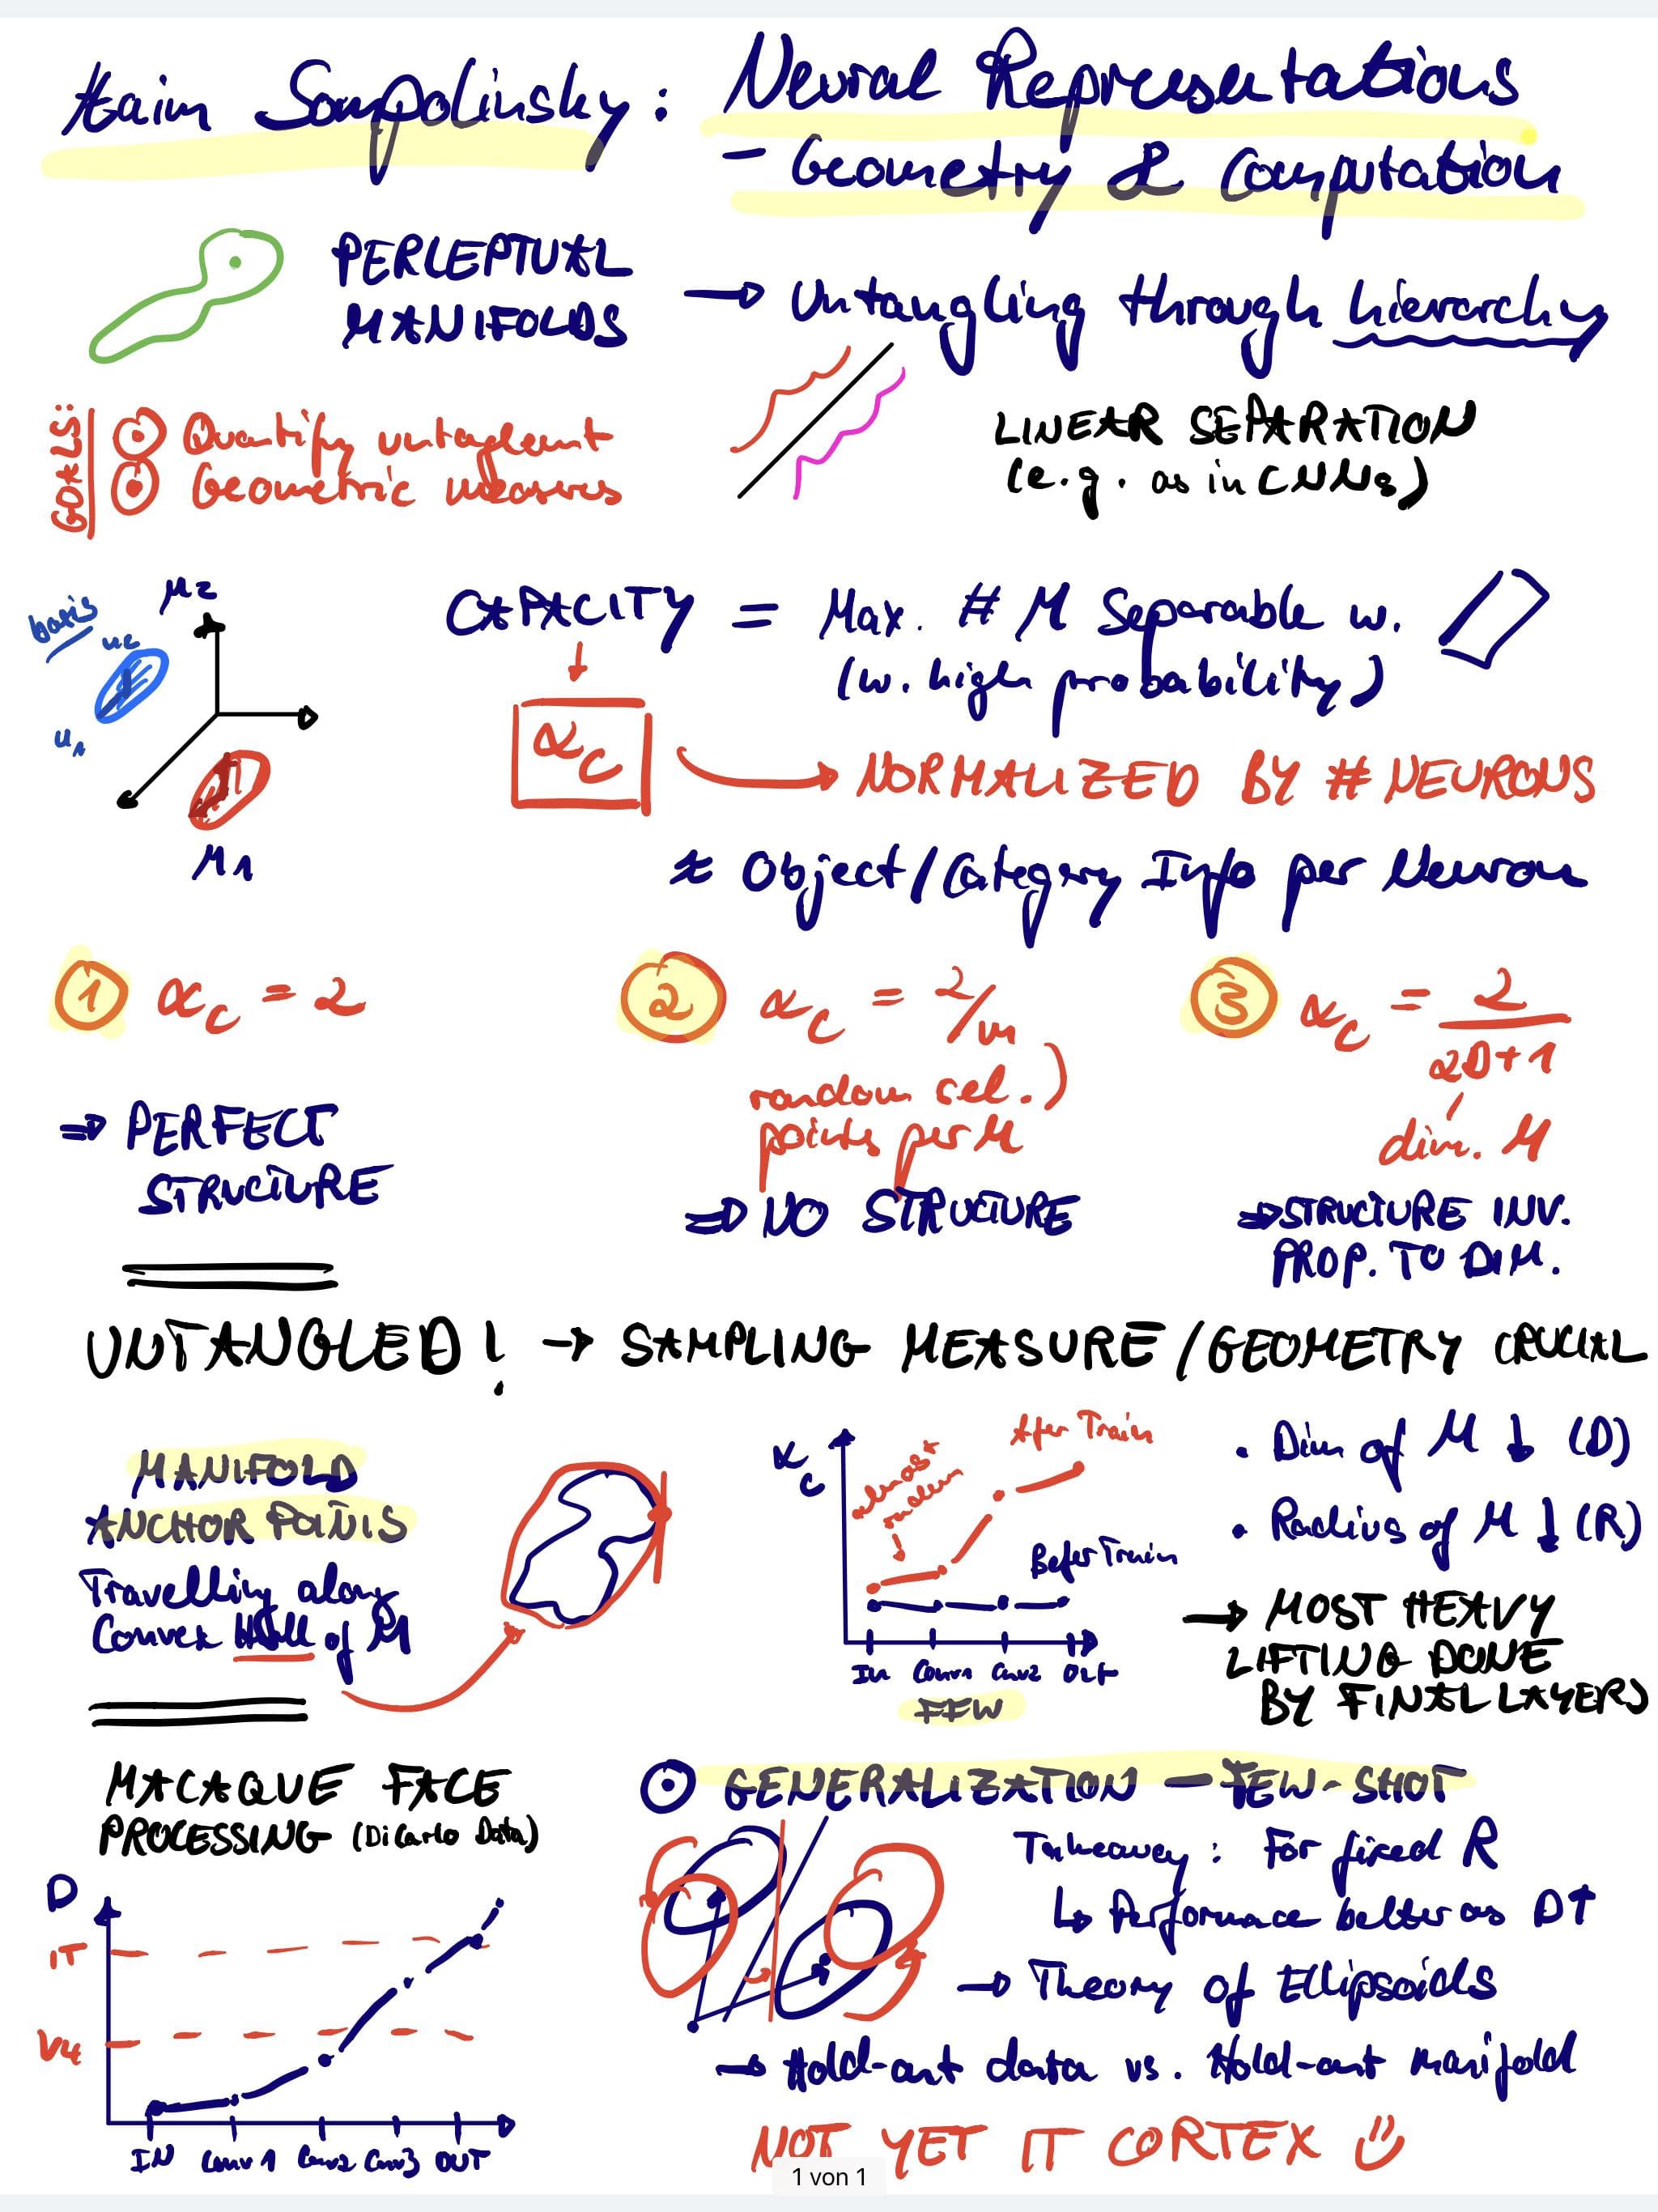 Haim Sompolinsky: Neural Representations
- Geometry & Computation
PERCEPTUAL
MANIFOLDS
→ Untangling through hierarchy
GOALS:
Quantify untaglemt
Geometric measures
LINEAR SEPARATION
(e.g. as in CNNs)
basis
u2
u1
M2
M1
CAPACITY = Max. # M Separable w.
(w. high probability)
αc
NORMALIZED BY # NEURONS
≈ Object/Category Info per Neuron
1 αc = 2
⇒ PERFECT
STRUCTURE
2 αc = 2/m
random sel.
points per M
⇒ NO STRUCTURE
3 αc = 2/2D+1
dim. M
⇒ STRUCTURE INV.
PROP. TO DIM.
UNTANGLED! → SAMPLING MEASURE/GEOMETRY CRUCIAL
MANIFOLD
ANCHOR POINTS
Travelling along
Convex Hull of M
αc
almost
random
After Train
Befor Train
In Conv1 Conv2 Out
FFW
• Dim of M ↓ (D)
• Radius of M ↓ (R)
→ MOST HEAVY
LIFTING DONE
BY FINAL LAYERS
MACAQUE FACE
PROCESSING (DiCarlo Data)
D
IT
V4
IN Conv1 Conv2 Conv3 OUT
GENERALIZATION - FEW-SHOT
Takeaway: For fixed R
↳ Performace better as D↑
→ Theory of Ellipsoids
→ Hold-out data vs. Hold-out manifold
NOT YET IT CORTEX
1 von 1